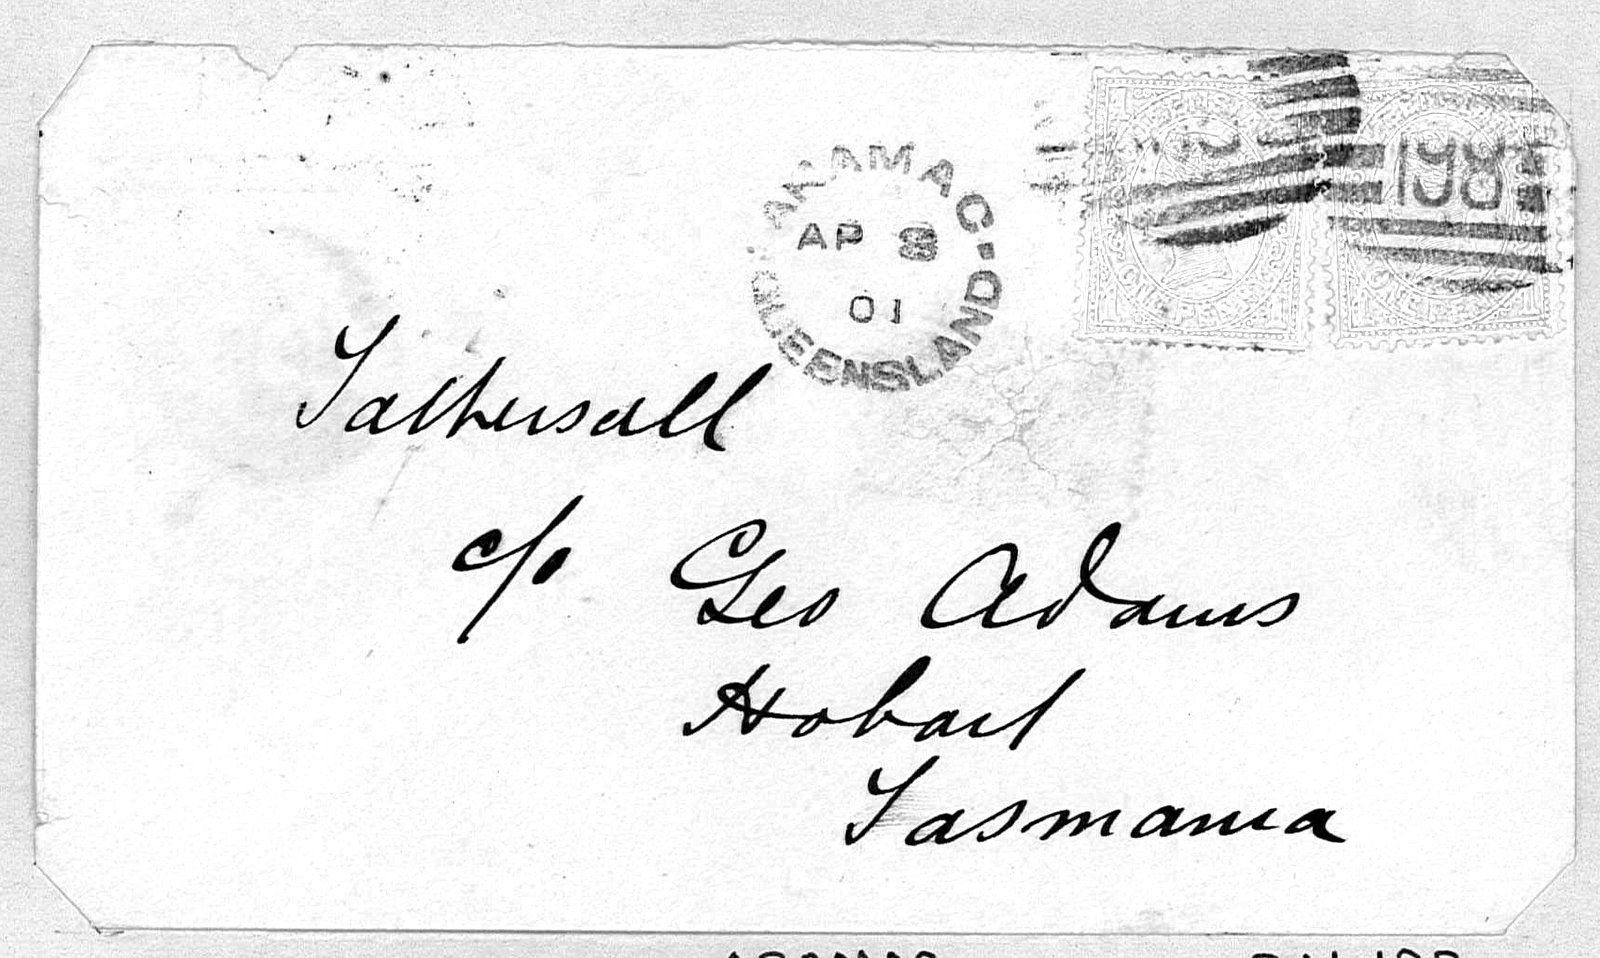 ARAMAC.
AP 8
01
QUEENSLAND
198
Tattersall
c/o Geo Adams
Hobart
Tasmania